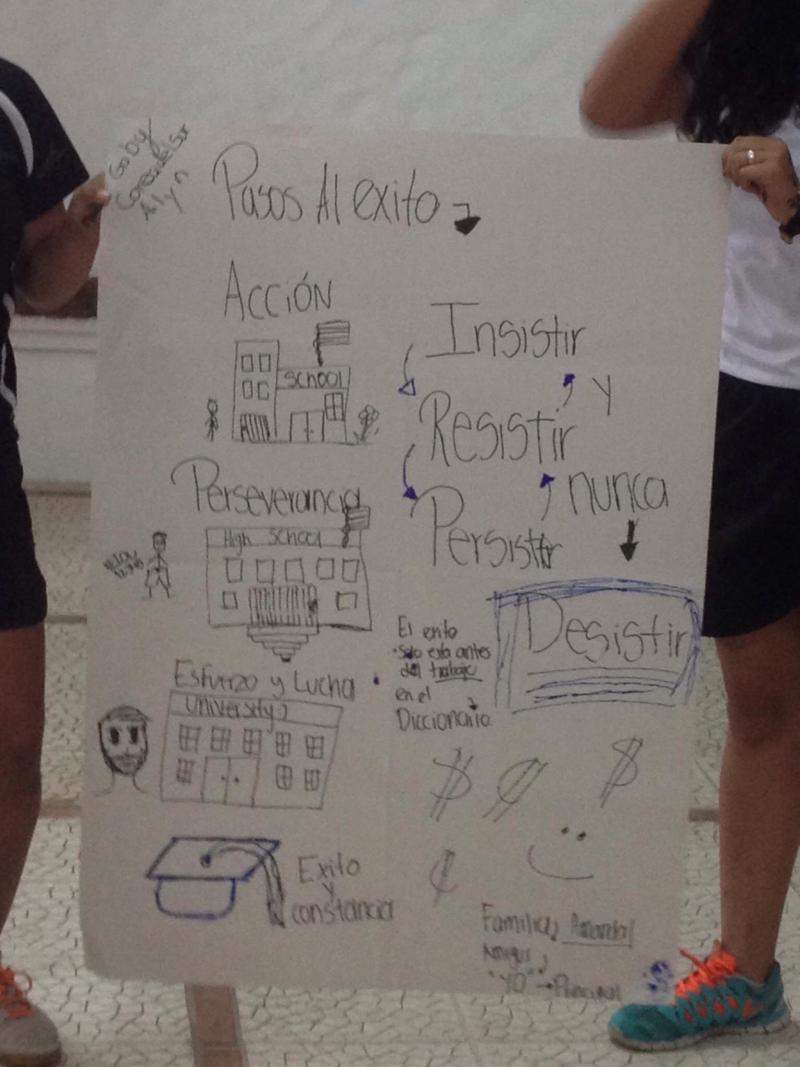 Goby
Alyn
Pasos Al exito
ACCIÓN
SCHOOL
Perseverancia
High School
Esfuerzo y Lucha
University
Exito
y
constancia
Insistir
y
Resistir
nunca
Persistir
Desistir
El exito
Solo esta antes
del trabajo
en el
Diccionario
$ ¢ $
¢
Familia,
Amigos,
"YO" → Principal